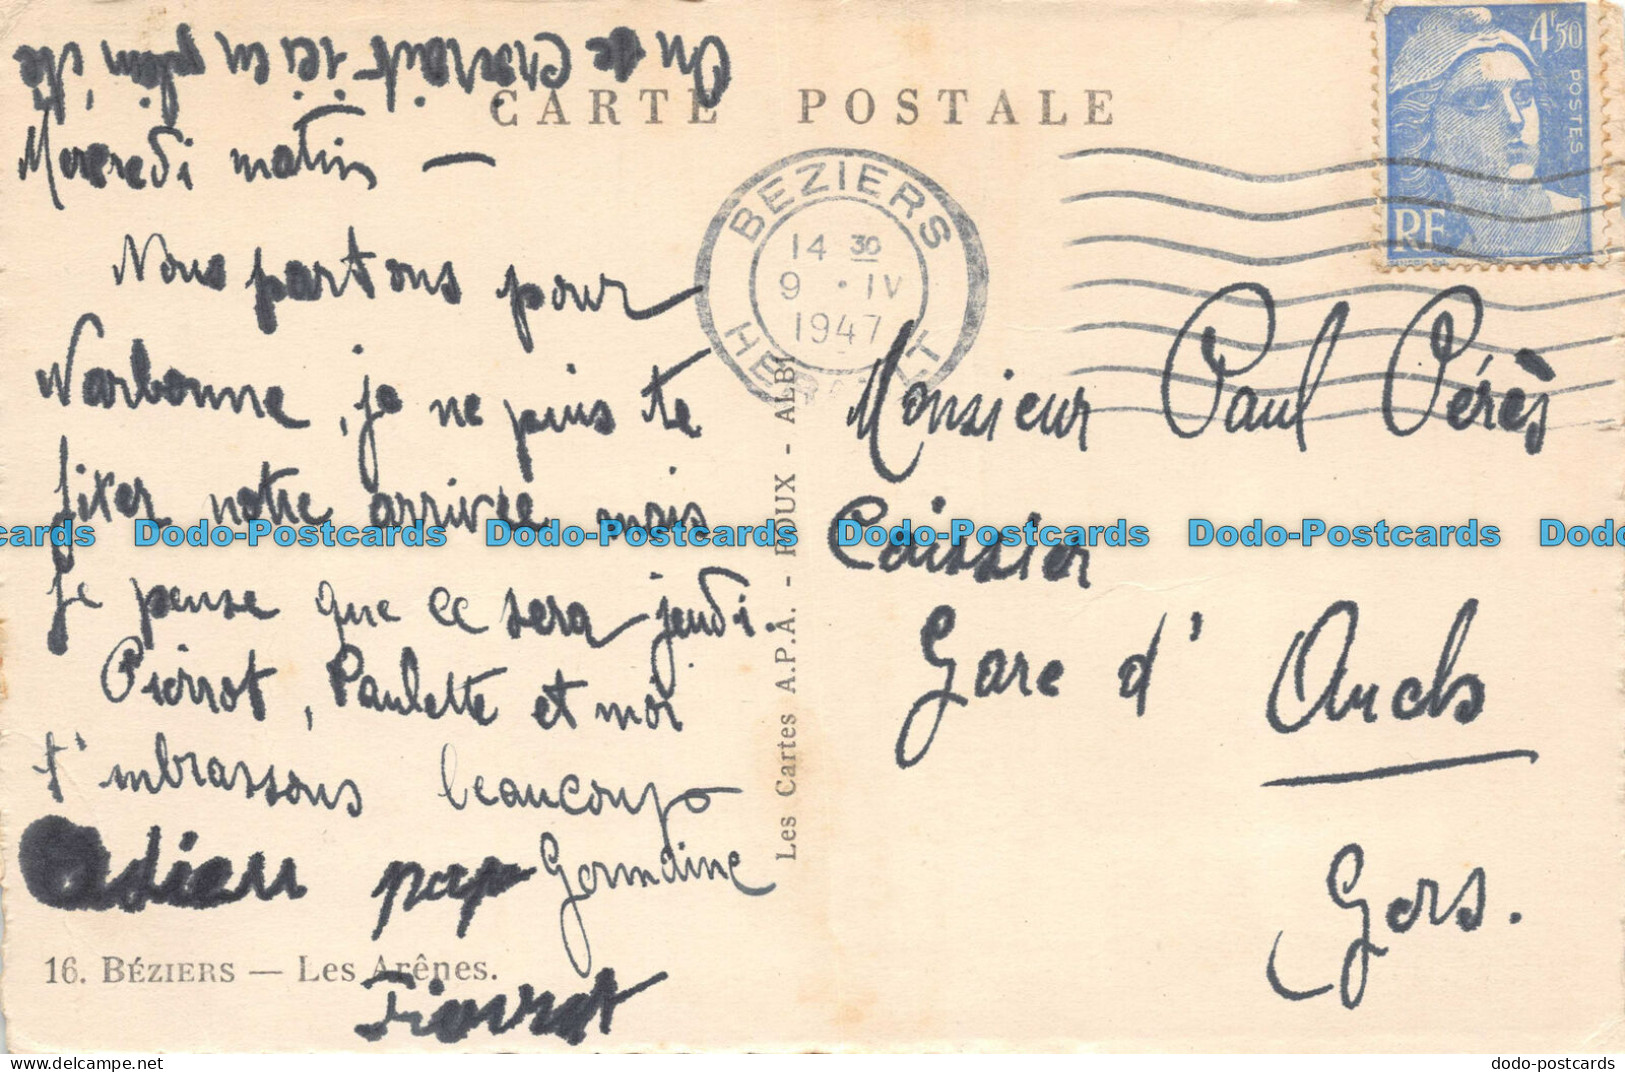 On se croirait ici en plein été
CARTE POSTALE
4f50
POSTES
RF
BEZIERS
14 30
9 · IV
1947
HERAULT
Mercredi matin —
Nous partons pour
Narbonne, je ne puis te
fixer notre arrivée mais
je pense que ce sera jeudi.
Pierrot, Paulette et moi
t'embrassons beaucoup
Germaine
Adieu pap
Pierrot
16. BÉZIERS — Les Arênes.
Les Cartes A.P.A. - ROUX - ALBI
Monsieur Paul Pérès
Caissier
Gare d'Auch
Gers.
Dodo-Postcards Dodo-Postcards Dodo-Postcards Dodo-Postcards
dodo-postcards.com